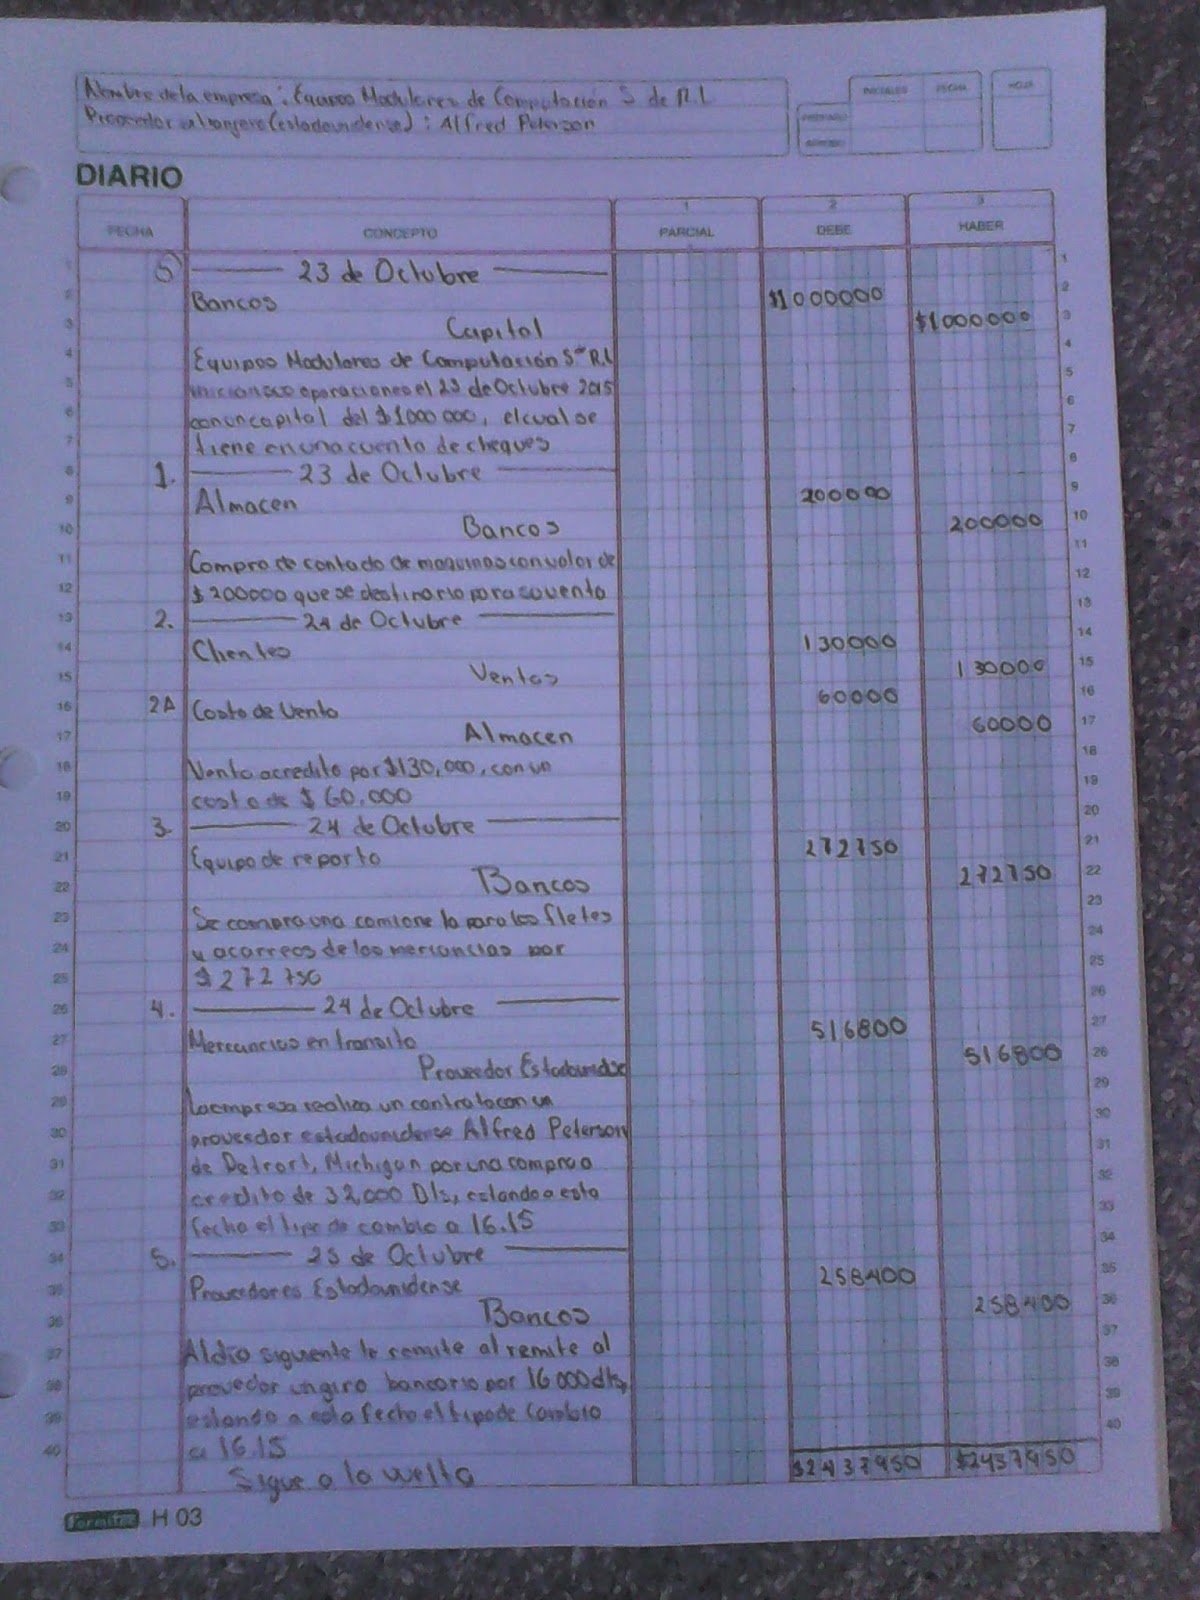 Nombre de la empresa: Equipos Modulares de Computación S de R.L
Proveedor extranjero (estadounidense): Alfred Peterson
INICIALES FECHA HOJA
DIARIO
FECHA CONCEPTO 1 PARCIAL 2 DEBE 3 HABER
S) 23 de Octubre
Bancos $1000000
Capital $1000000
Equipos Modulares de Computación S de R.L
inicia sus operaciones el 23 de Octubre 2015
con un capital del $1000 000, el cual se
tiene en una cuenta de cheques
1. 23 de Octubre
Almacen 200000
Bancos 200000
Compra de contado de maquinas con valor de
$200000 que se destinaria para su venta
2. 24 de Octubre
Clientes 130000
Ventas 130000
2A Costo de Venta 60000
Almacen 60000
Venta a credito por $130,000, con un
costo de $60,000
3. 24 de Octubre
Equipo de reparto 272750
Bancos 272750
Se compra una camioneta para los fletes
y acarreos de las mercancias por
$272 750
4. 24 de Octubre
Mercancias en transito 516800
Proveedor Estadounidense 516800
La empresa realiza un contrato con un
proveedor estadounidense Alfred Peterson
de Detroit, Michigan por una compra a
credito de 32,000 Dls, estando a esta
fecha el tipo de cambio a 16.15
5. 25 de Octubre
Proveedores Estadounidense 258400
Bancos 258400
Al dia siguiente le remite al remite al
proveedor un giro bancario por 16000 dls,
estando a esta fecha el tipo de cambio
a 16.15
Sigue a la vuelta $2437950 $2437950
formitec H 03